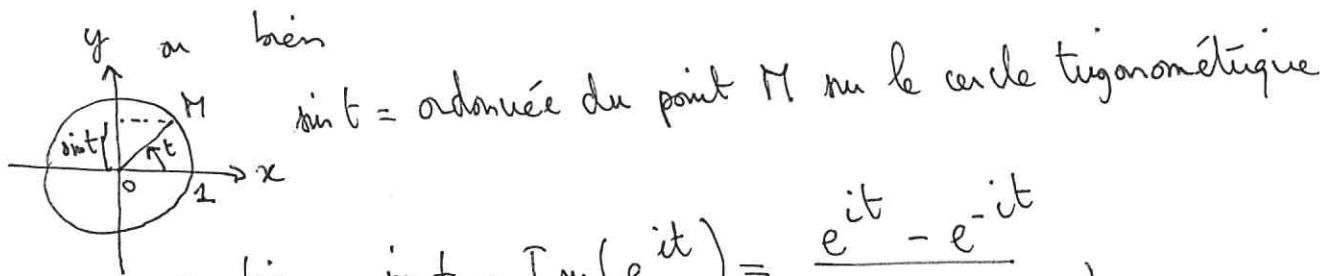 y ou bien
M
sin t = ordonnée du point M sur le cercle trigonométrique
sin t
t
0
1
x
ou bien sin t = Im(e^{it}) = e^{it} - e^{-it}